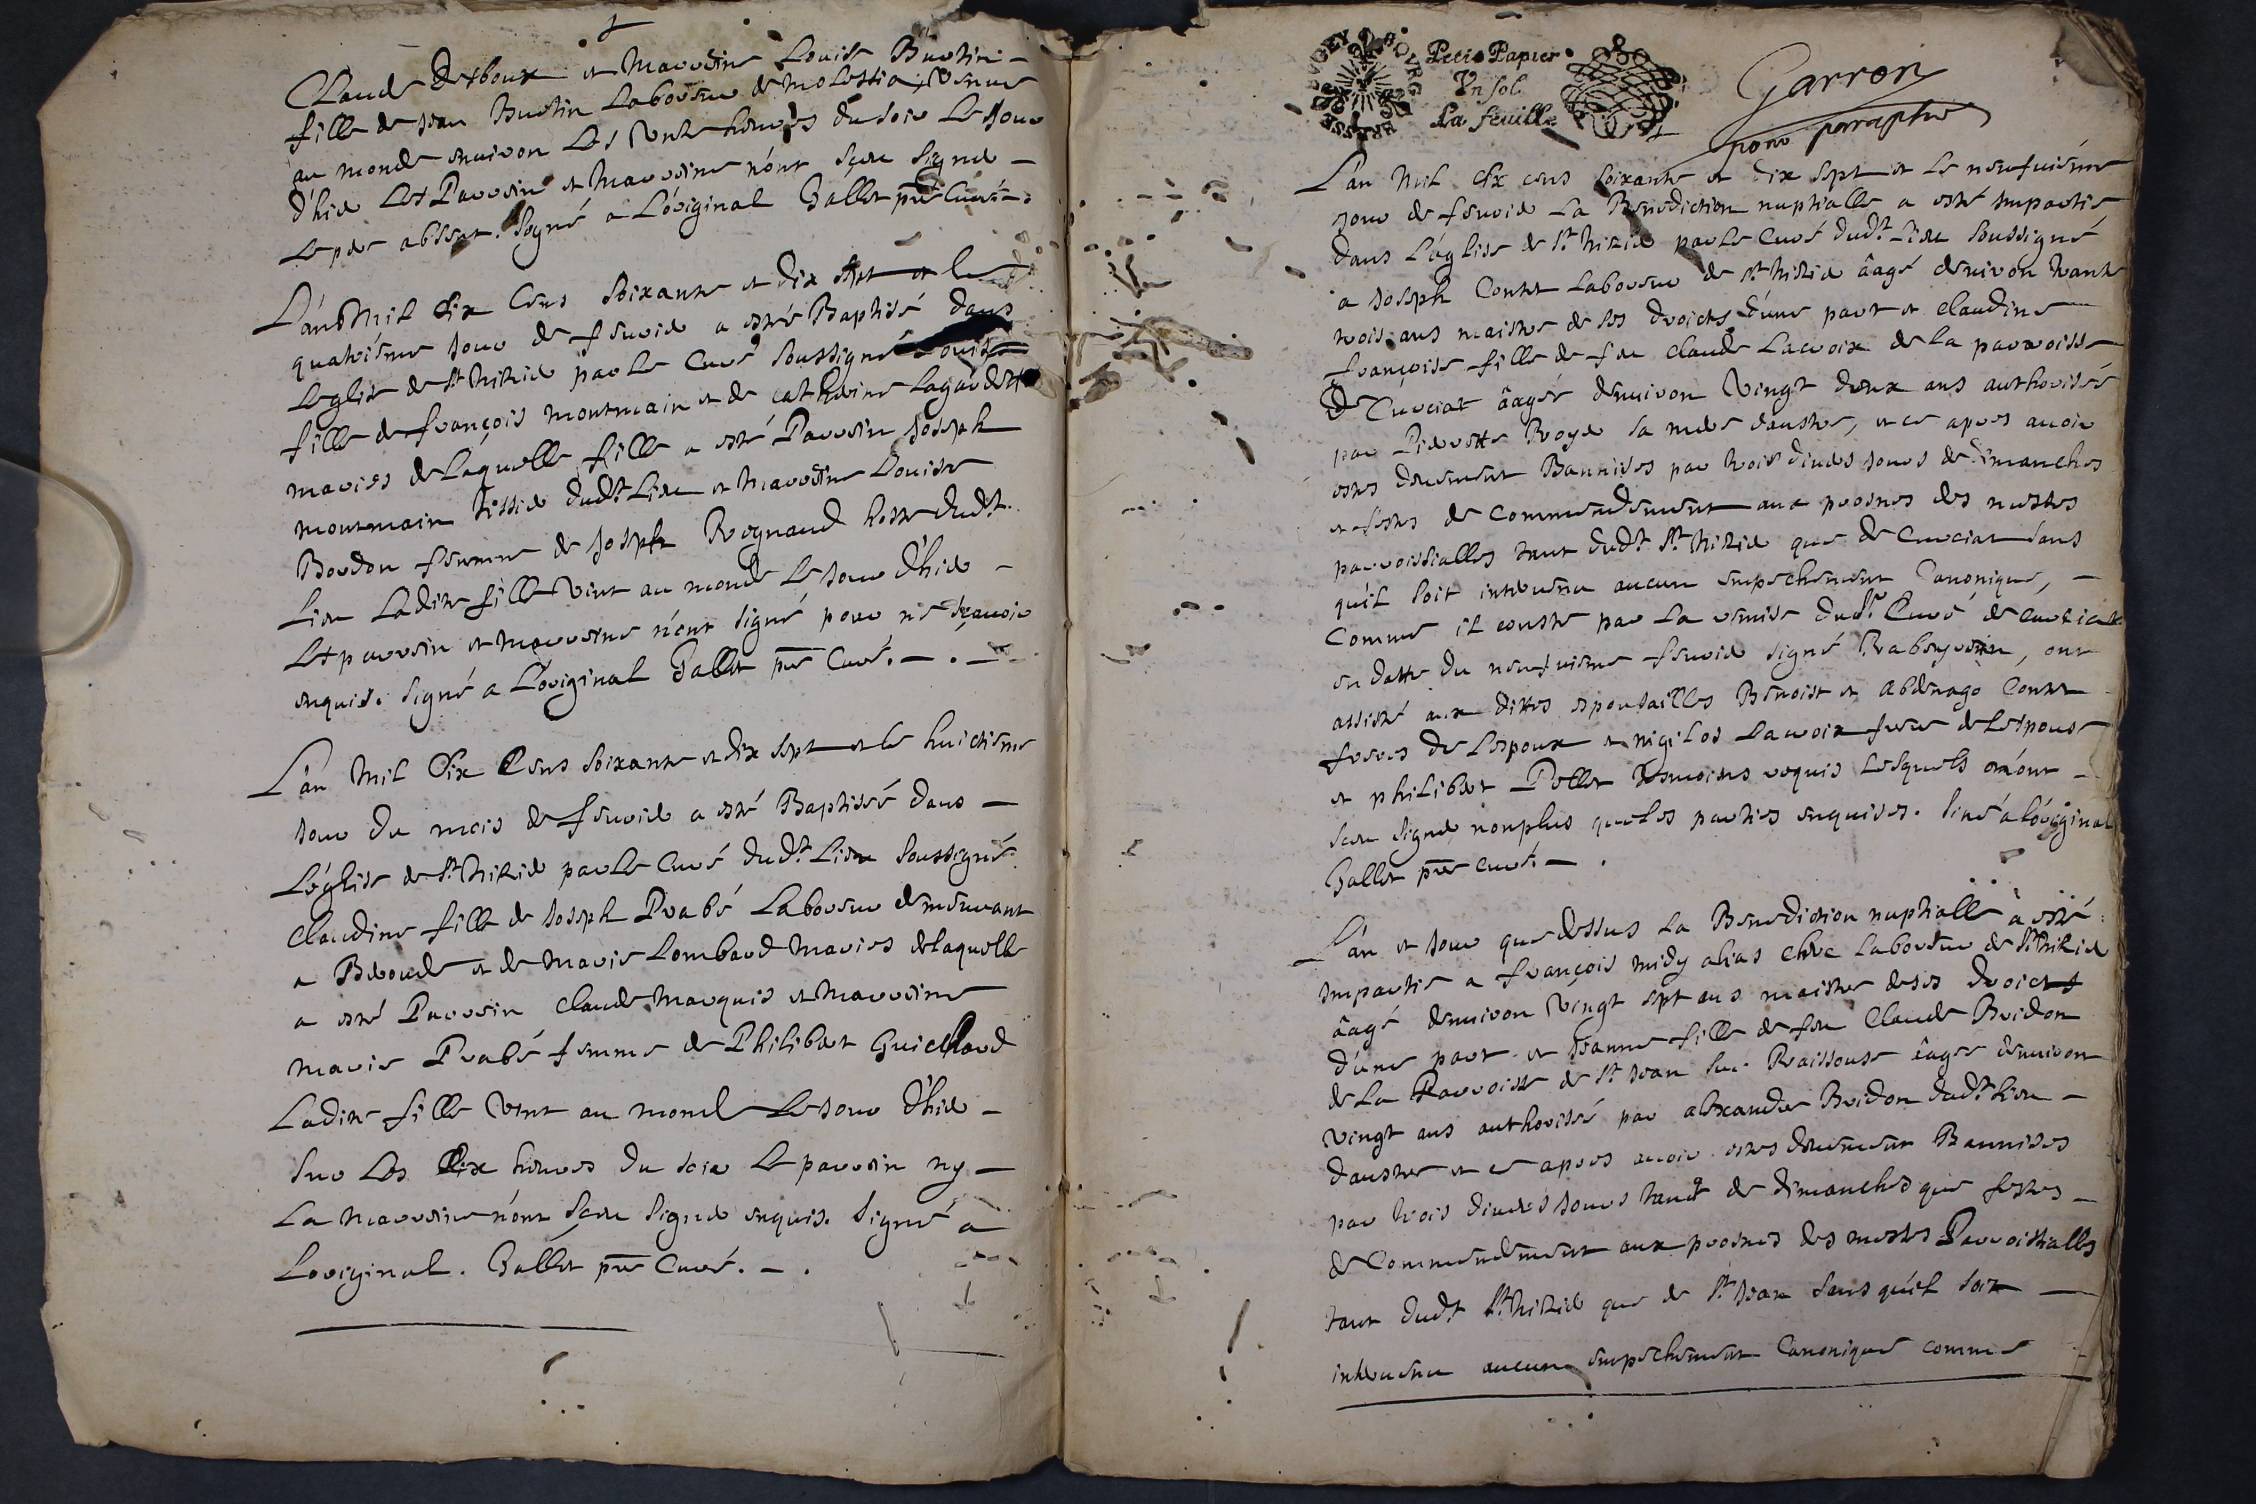 Claude Desboux et Marreine Louise Buotin
fille de Jean Buotin Laboureur de molessia, venue
au monde environ Les unze heures du soir Le Jour
d'hier Les Parrein et Marreine n'ont sçeu signer
Le pere absent. Signé a L'original Gallet pre Curé.
L'an Mil Six Cens Soixante et dix sept et le
quatriéme jour de feurier a esté Baptisé dans
Leglise de St Nizier par Le Curé soussigné Louise
fille de françois montmain et de catherine Lagardette
maries de Laquelle fille a esté Parrein Joseph
montmain tissier dudt Lieu et Marreine Louise
Bordon femme de Joseph Regnaud hoste dudt
Lieu Ladite fille vint au monde Le Jour d'hier
Les parrein et marreine n'ont signé pour ne sçauoir
enquis. signé a L'original Gallet pre Curé.
L'an Mil Six Cens soixante et dix sept et le huictiéme
jour du mois de feurier a esté Baptisée dans
L'église de St Nizier par Le Curé dudt Lieu soussigné
Claudine fille de Joseph Prabé Laboureur demeurant
a et de Marie Lombard Maries de laquelle
a esté Parrein Claude Marquis et Marreine
Marie Prabé femme de Philibert Guichard
Ladite fille vint au monde Le jour d'hier
sur Les dix heures du soir Le parrein ny
La Marreine n'ont sçeu signer enquis. Signé a
Loriginal. Gallet pre Curé.
BRESSE BVGEY BOVRG
Petit Papier
Vn sol
La feuille
Garron
pour parrapher
L'an Mil six cens soixante et dix sept et le neufuiéme
jour de feurier La Benediction nuptialle a esté impartie
dans L'église de St Nizier par Le Curé dudt Lieu soussigné
a Joseph Contet Laboureur de St Nizier âagé denuiron trante
trois ans maistre de ses droicts d'une part et claudine
françoise fille de feu claude Lacroix de la parroisse
de Curciat âagée denuiron vingt deux ans authorisée
par Pierrette Royer sa mere d'austre, et ce apres auoir
estes deuement Bannises par trois diuers jours de dimanches
et festes de commendement aux prosnes des messes
parroissialles tant dudt St Nizier que de Curciat sans
qu'il soit interuenu aucun empechement Canonique,
Comme il conste par La remise dudt Sr Curé de curciat
en datte du neufuieme feurier signé, ont
assisté aux dittes espousailles Benoist et Abdenago Contet
freres de Lespoux et Lacroix frere de Lespouse
et philibert Pellet temoins requis Lesquels n'ont
sceu signer nonplus que les parties enquises. siné a l'original
Gallet pre curé.
L'an et jour que dessus La Benediction nuptialle a esté
impartie a françois midy alias clerc Laboureur de St Nizier
âagé denuiron vingt sept ans maistre de ses droicts
d'une part et Jeanne fille de feu Claude Bridon
de La Parroisse de St Jean sur Raissouse âagée denuiron
vingt ans authorisée par alexandre Bridon dudt Lieu
d'austre et ce apres auoir estes deuement Bannises
par trois diuers jours tant de dimanches que festes
de Commendement aux prosnes des messes Parroissialles
tant dudt St Nizier que de St Jean sans qu'il soit
interuenu aucun empechement Canonique comme